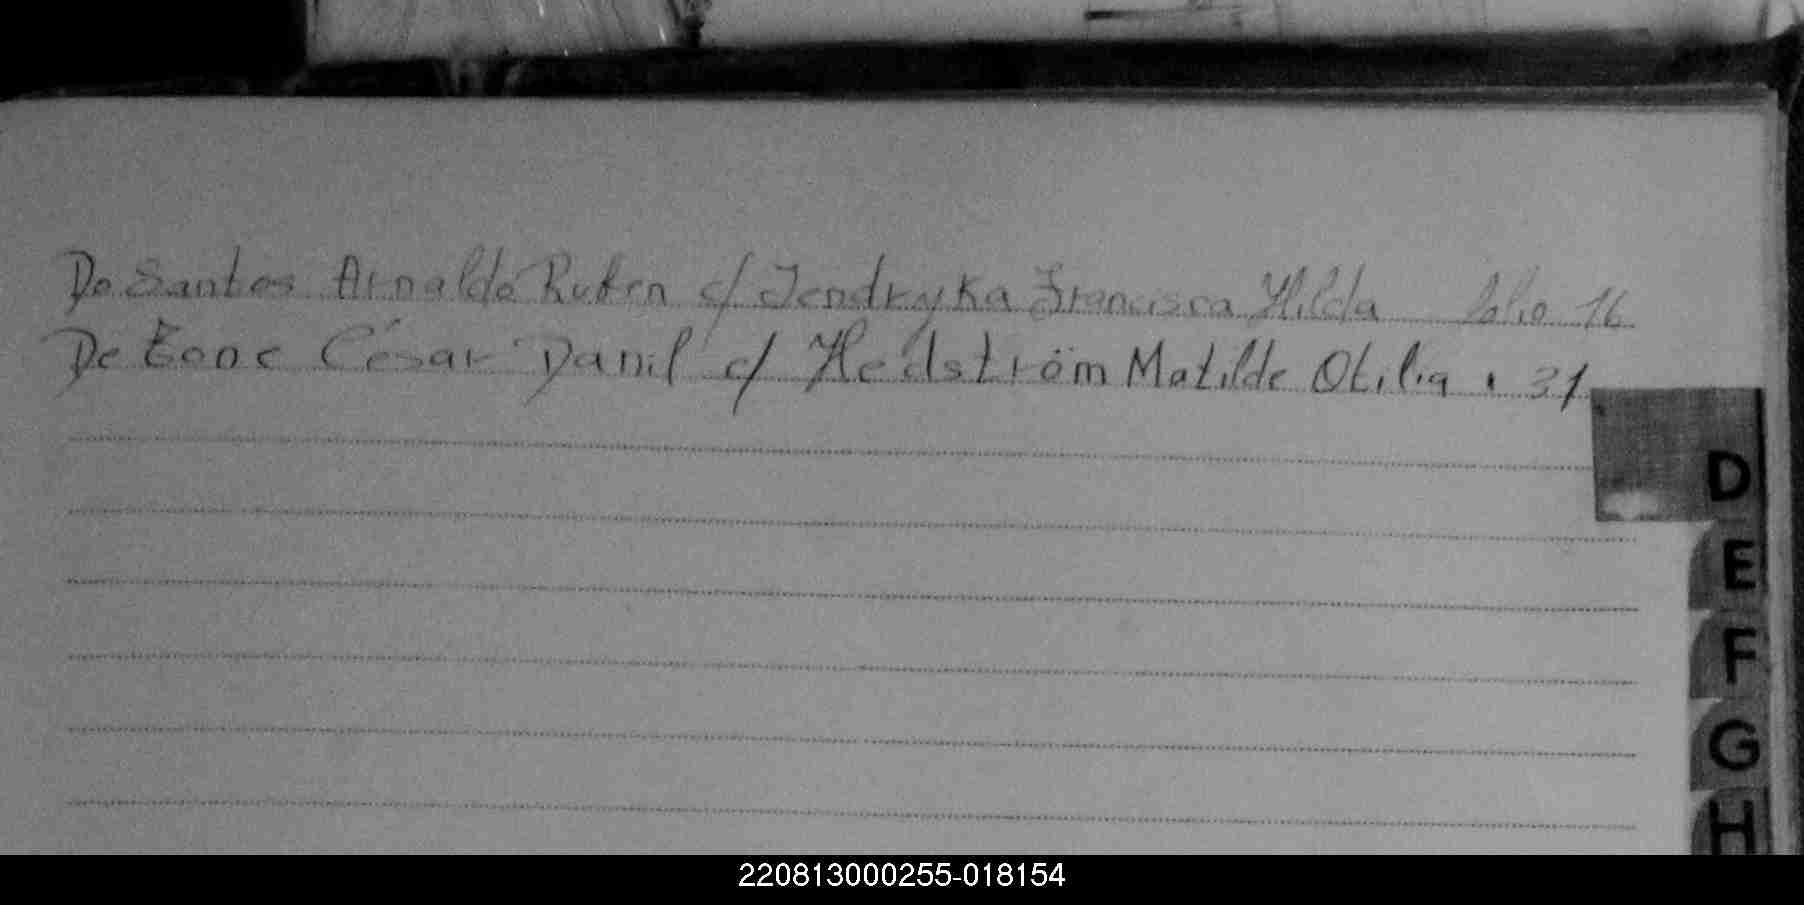 Do Santos Arnaldo Ruben c/ Jendryka Francisca Hilda folio 16
De Zone César Danil c/ Hedström Matilde Otilia " 31
D
E
F
G
H
220813000255-018154